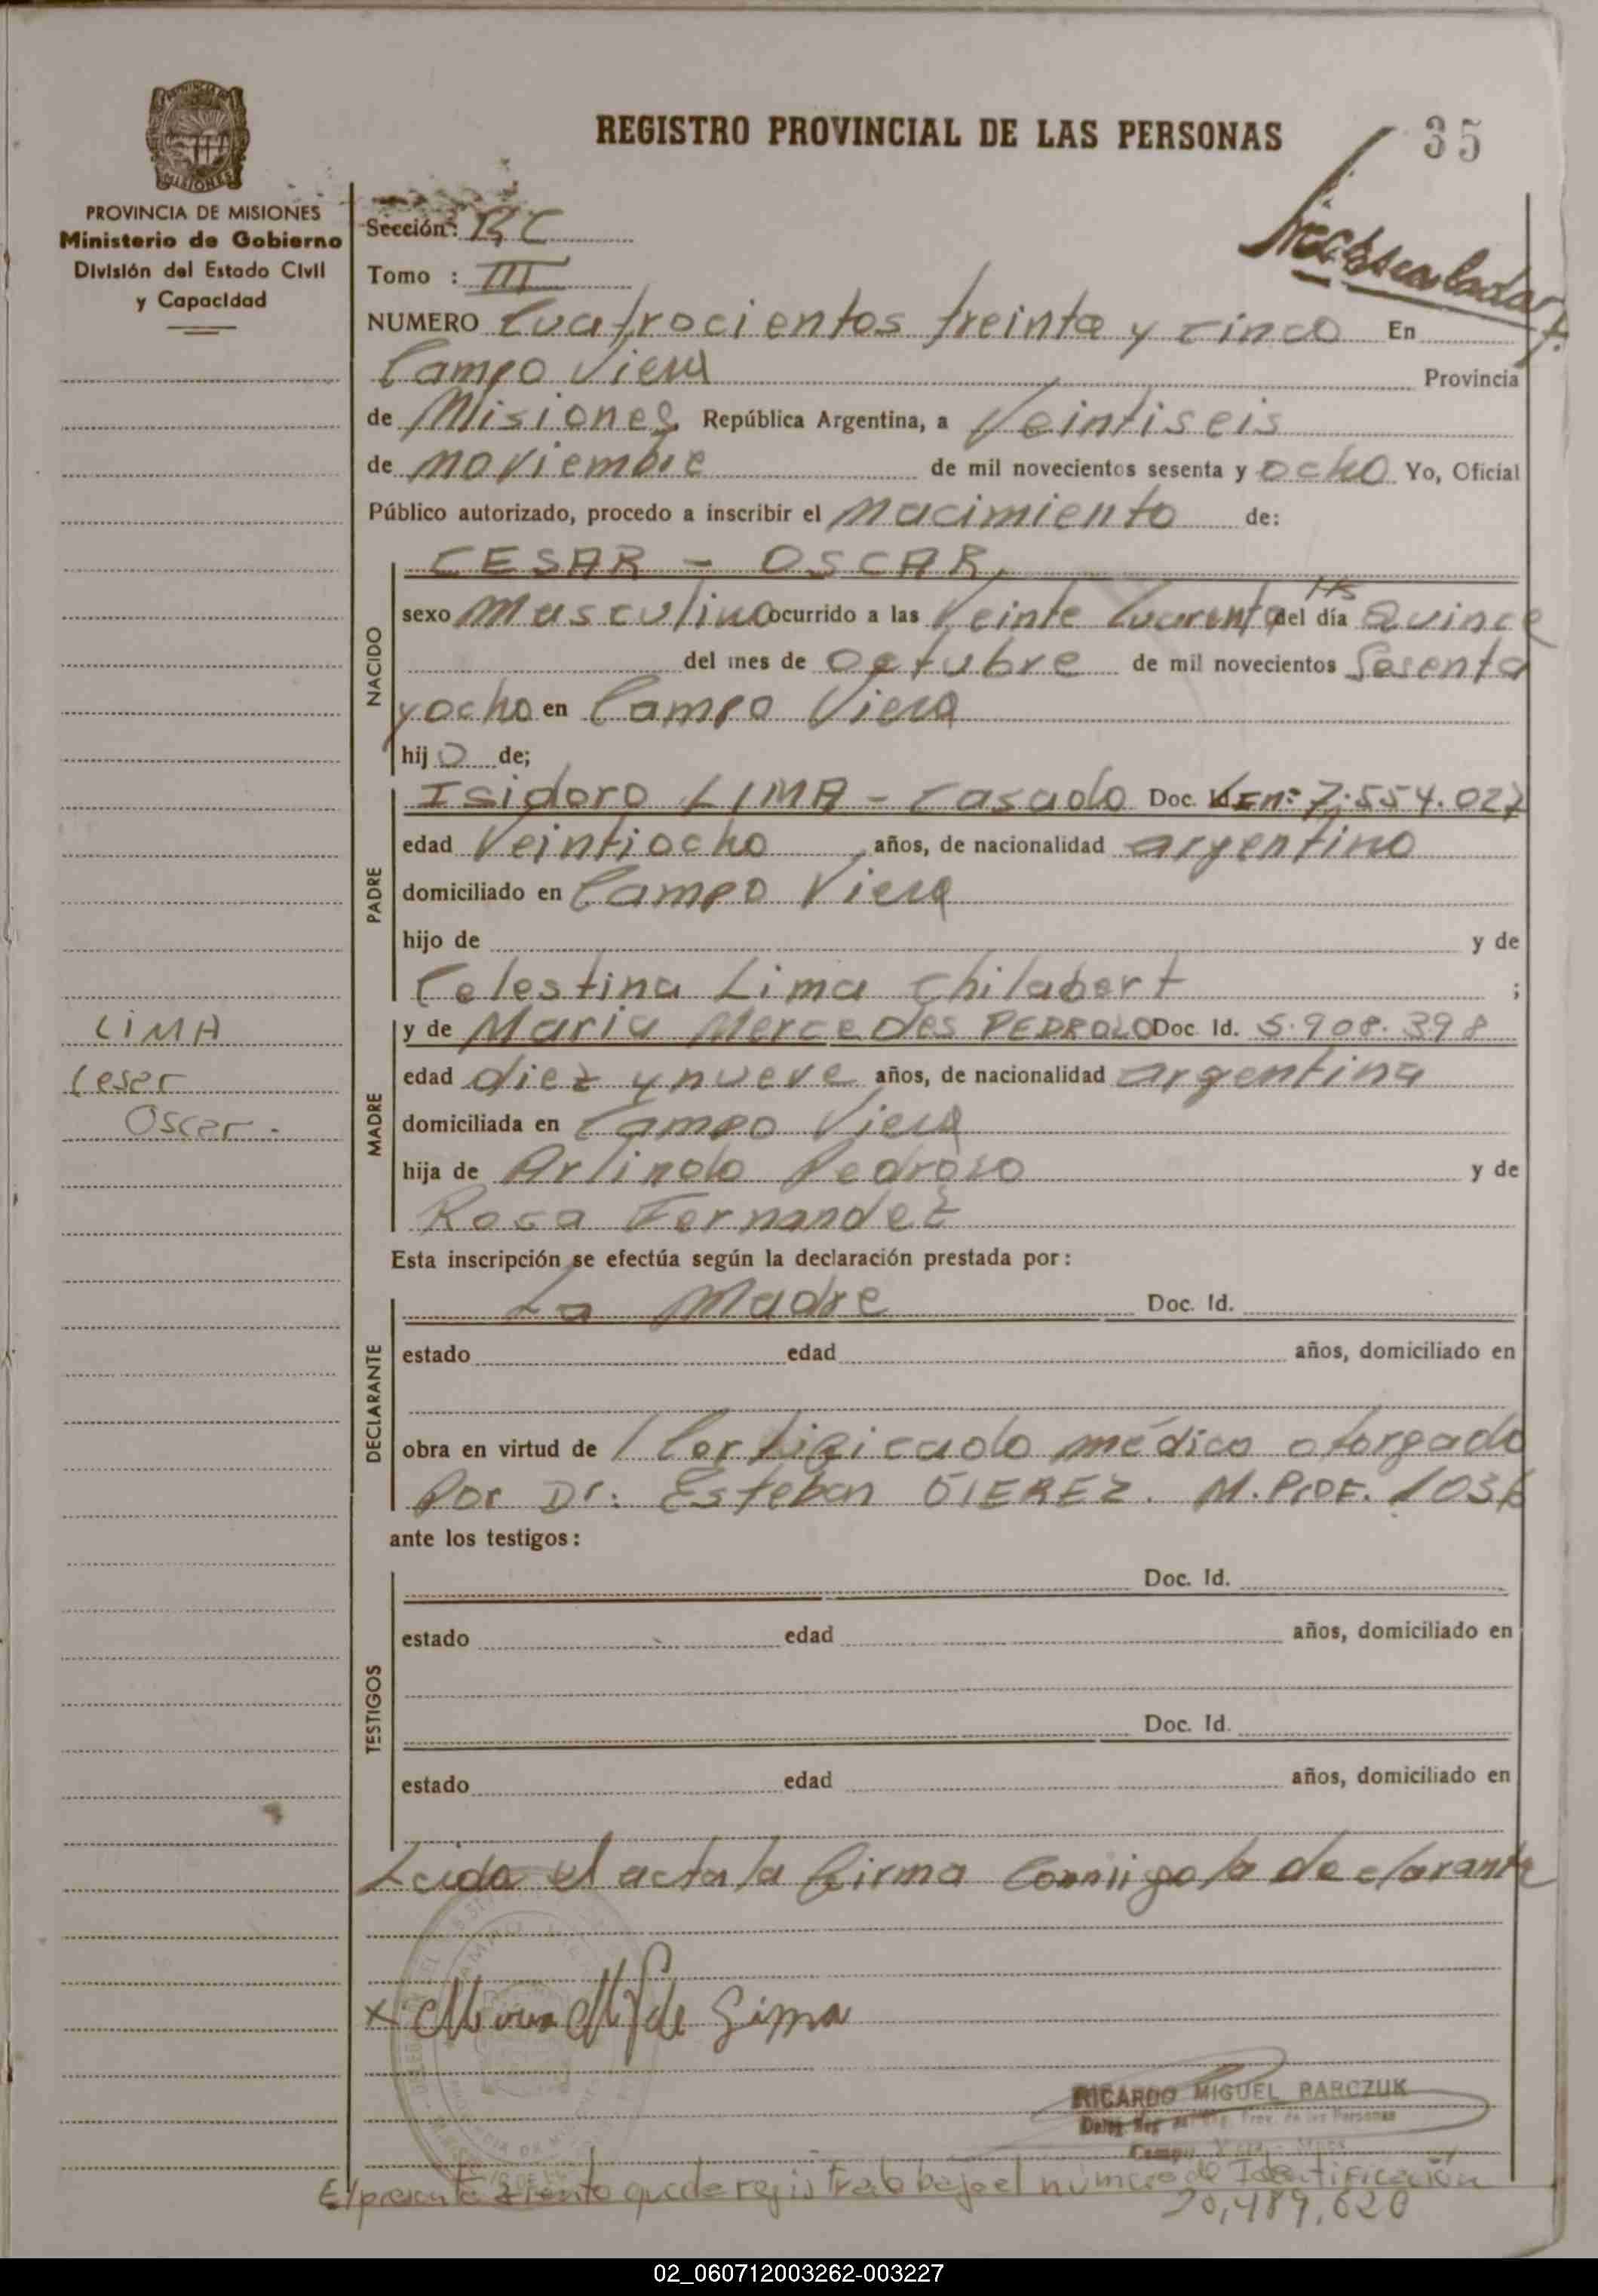 REGISTRO PROVINCIAL DE LAS PERSONAS
35
PROVINCIA DE MISIONES
Ministerio de Gobierno
División del Estado Civil
y Capacidad
Sección:
Tomo : III
NUMERO Cuatrocientos treinta y cinco En
Campo Viera Provincia
de Misiones República Argentina, a Veintiseis
de noviembre de mil novecientos sesenta y ocho Yo, Oficial
Público autorizado, procedo a inscribir el Nacimiento de:
NACIDO
CESAR - OSCAR
sexo Masculino ocurrido a las Veinte Cuarenta Hs del día Quince
del mes de Octubre de mil novecientos Sesenta
y ocho en Campo Viera
hijo de;
PADRE
Isidoro LIMA - Casado Doc. 7.554.027
edad Veintiocho años, de nacionalidad argentino
domiciliado en Campo Viera
hijo de y de
Celestina Lima Chilabert ;
LIMA
Cesar
Oscar.-
MADRE
y de Maria Mercedes PEDROZO Doc. Id. 5.908.398
edad diez y nueve años, de nacionalidad argentina
domiciliada en Campo Viera
hija de Arlindo Pedroso y de
Rosa Fernandez
Esta inscripción se efectúa según la declaración prestada por:
DECLARANTE
La Madre Doc. Id.
estado edad años, domiciliado en
obra en virtud de / Certificado médico otorgado
Por Dr. Esteban M. Prof. 1036
ante los testigos:
TESTIGOS
Doc. Id.
estado edad años, domiciliado en
Doc. Id.
estado edad años, domiciliado en
Leida el acta la firma Conmigo la declarante
x Maria M P de Lima
RICARDO MIGUEL BARCZUK
El presente asiento queda registrado bajo el número de Identificación
20,489,620
02_060712003262-003227